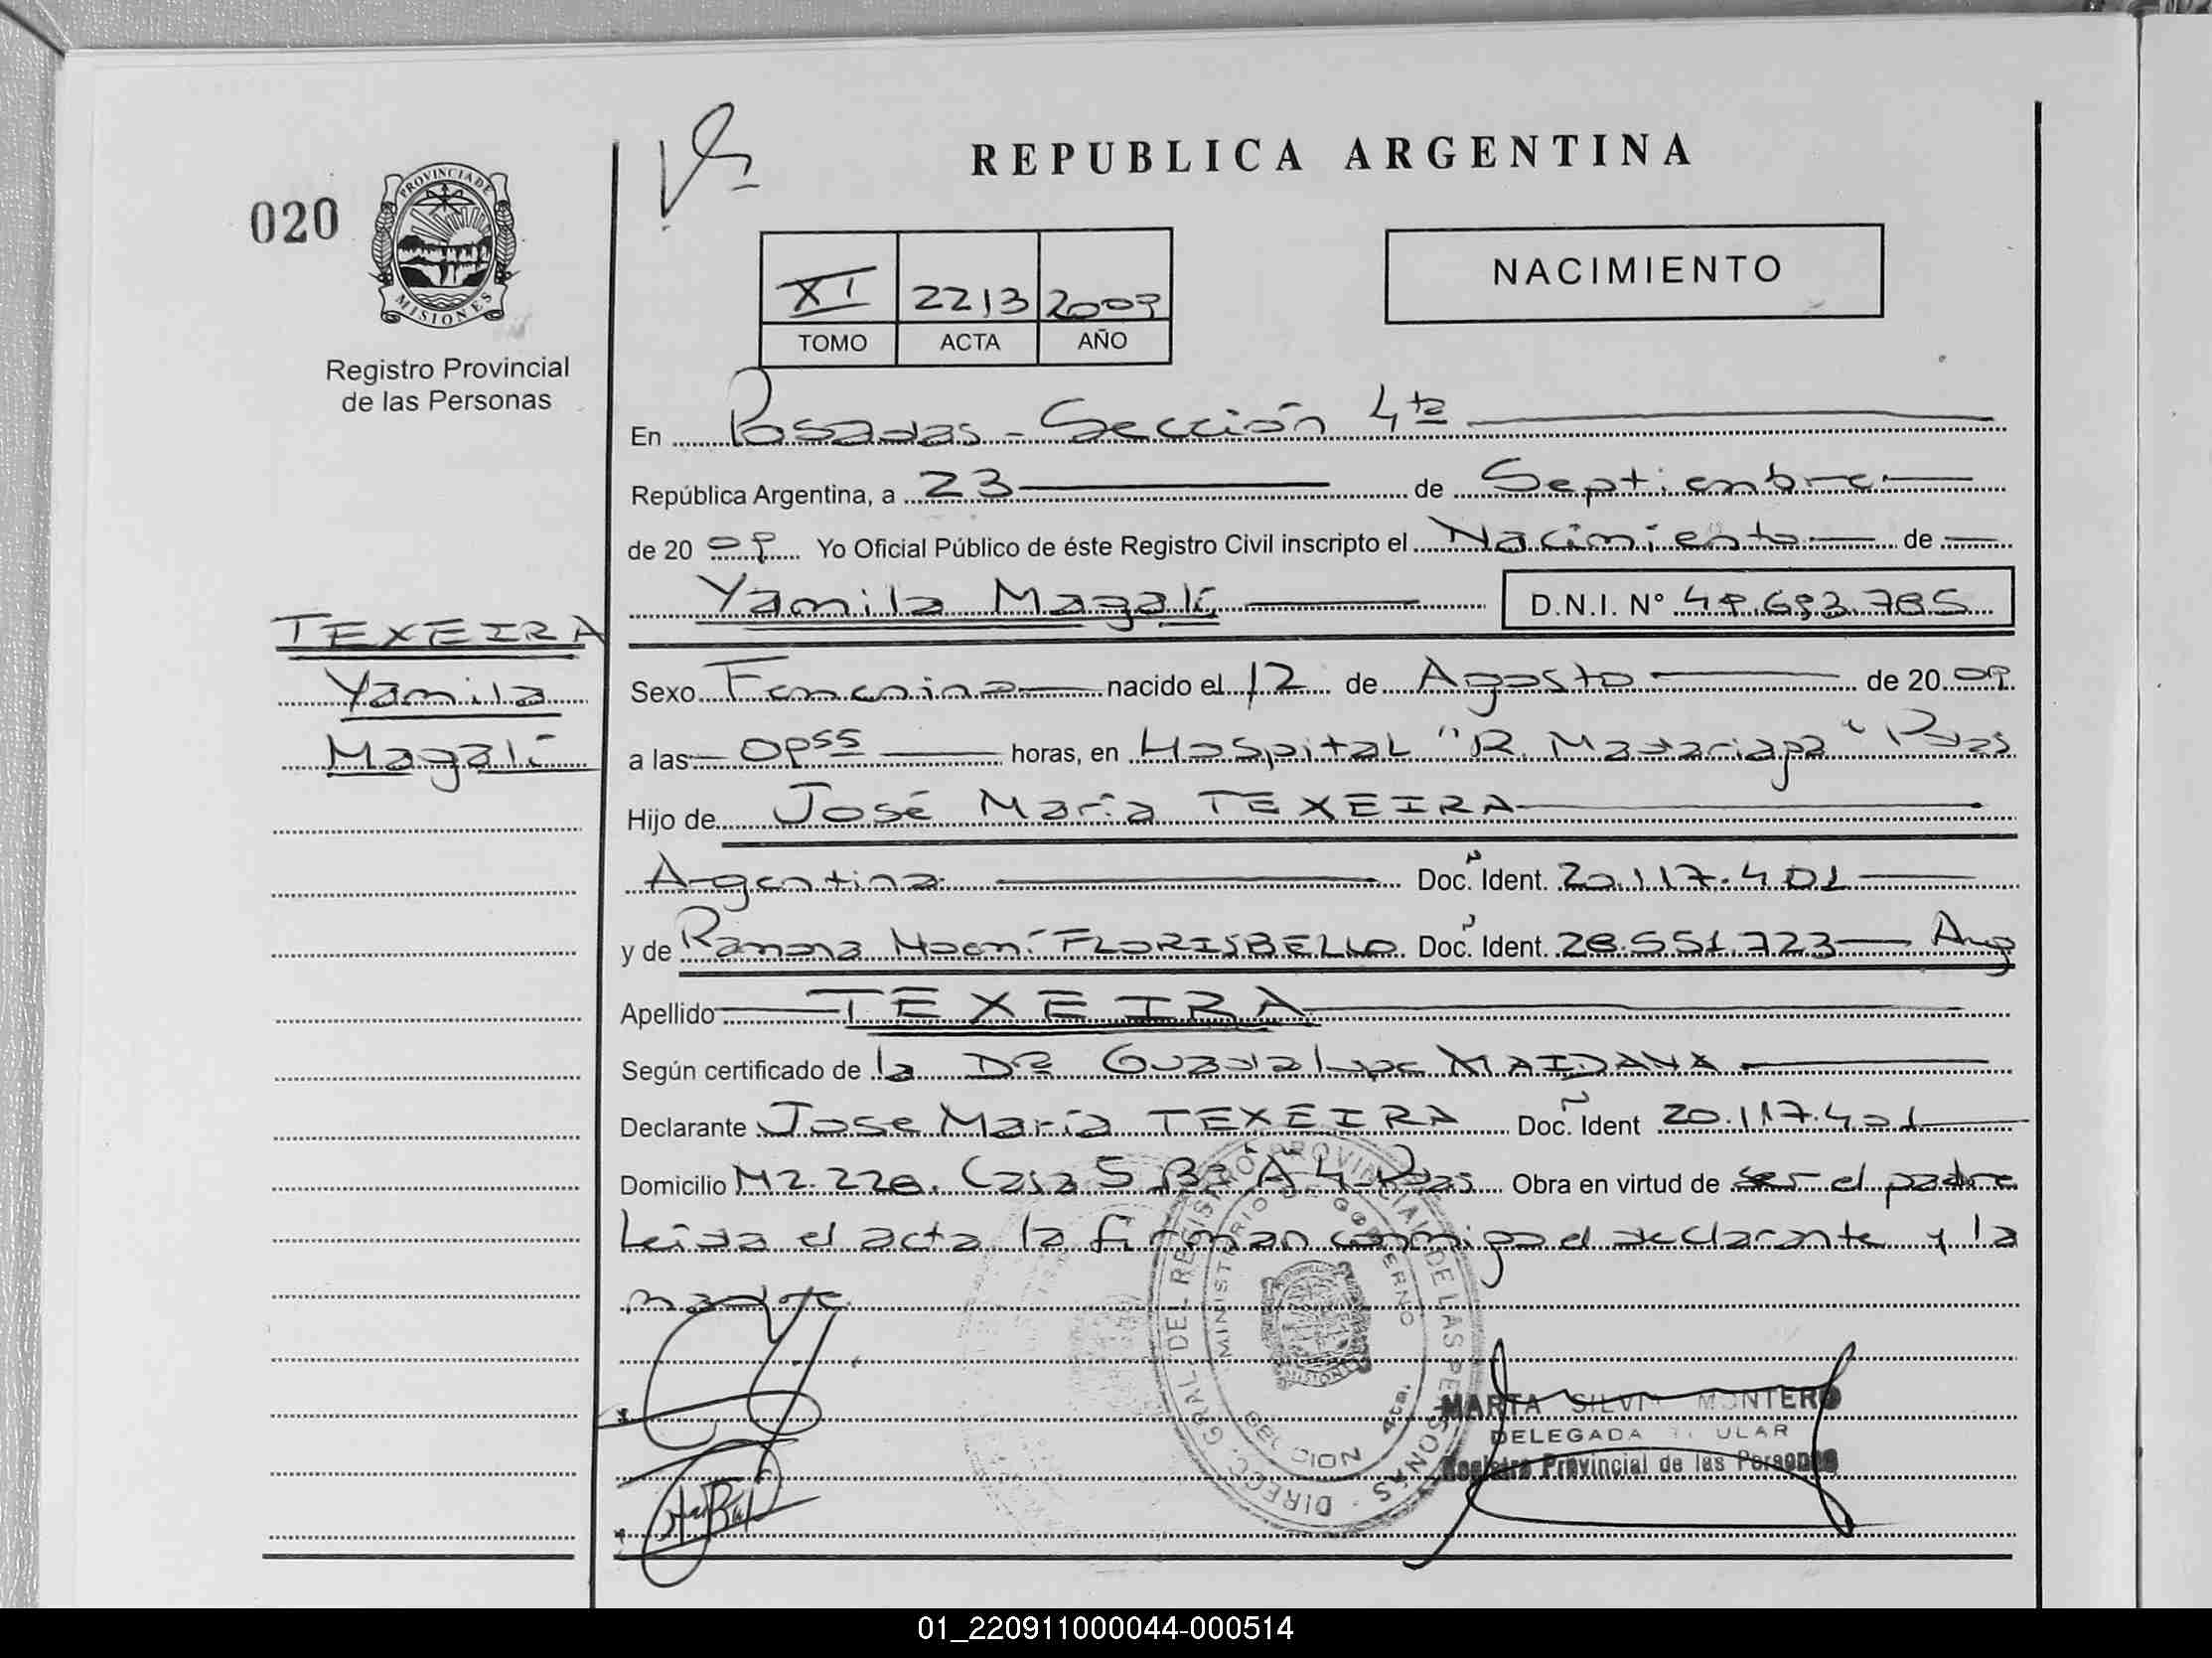 REPUBLICA ARGENTINA
020
PROVINCIA DE
MISIONES
Registro Provincial
de las Personas
NACIMIENTO
XI 2213 2009
TOMO ACTA AÑO
En Posadas - Sección 4ta
República Argentina, a 23 de Septiembre
de 2009 Yo Oficial Público de éste Registro Civil inscripto el Nacimiento de
Yamila Magalí D.N.I. Nº 49.693.785
TEXEIRA
Yamila
Magalí
Sexo Femenino nacido el 12 de Agosto de 2009
a las 09 55 horas, en Hospital "R. Madariaga" Pdas
Hijo de José María TEXEIRA
Argentina Doc. Ident. 20.117.401
y de Ramona Noemí FLORISBELLO Doc. Ident. 28.551.723 Arg
Apellido TEXEIRA
Según certificado de la Dra Guadalupe MAIDANA
Declarante Jose María TEXEIRA Doc. Ident 20.117.401
Domicilio Mz. 228. Casa 5 Bº A 4 Pdas Obra en virtud de ser el padre
Leida el acta la firman conmigo el declarante y la
madre
DIRECC. GRAL DEL REGISTRO PROVINCIAL DE LAS PERSONAS
MINISTERIO DE GOBIERNO
MISIONES
4ta.
MARTA SILVIA MONTERO
DELEGADA TITULAR
Registro Provincial de las Personas
01_220911000044-000514